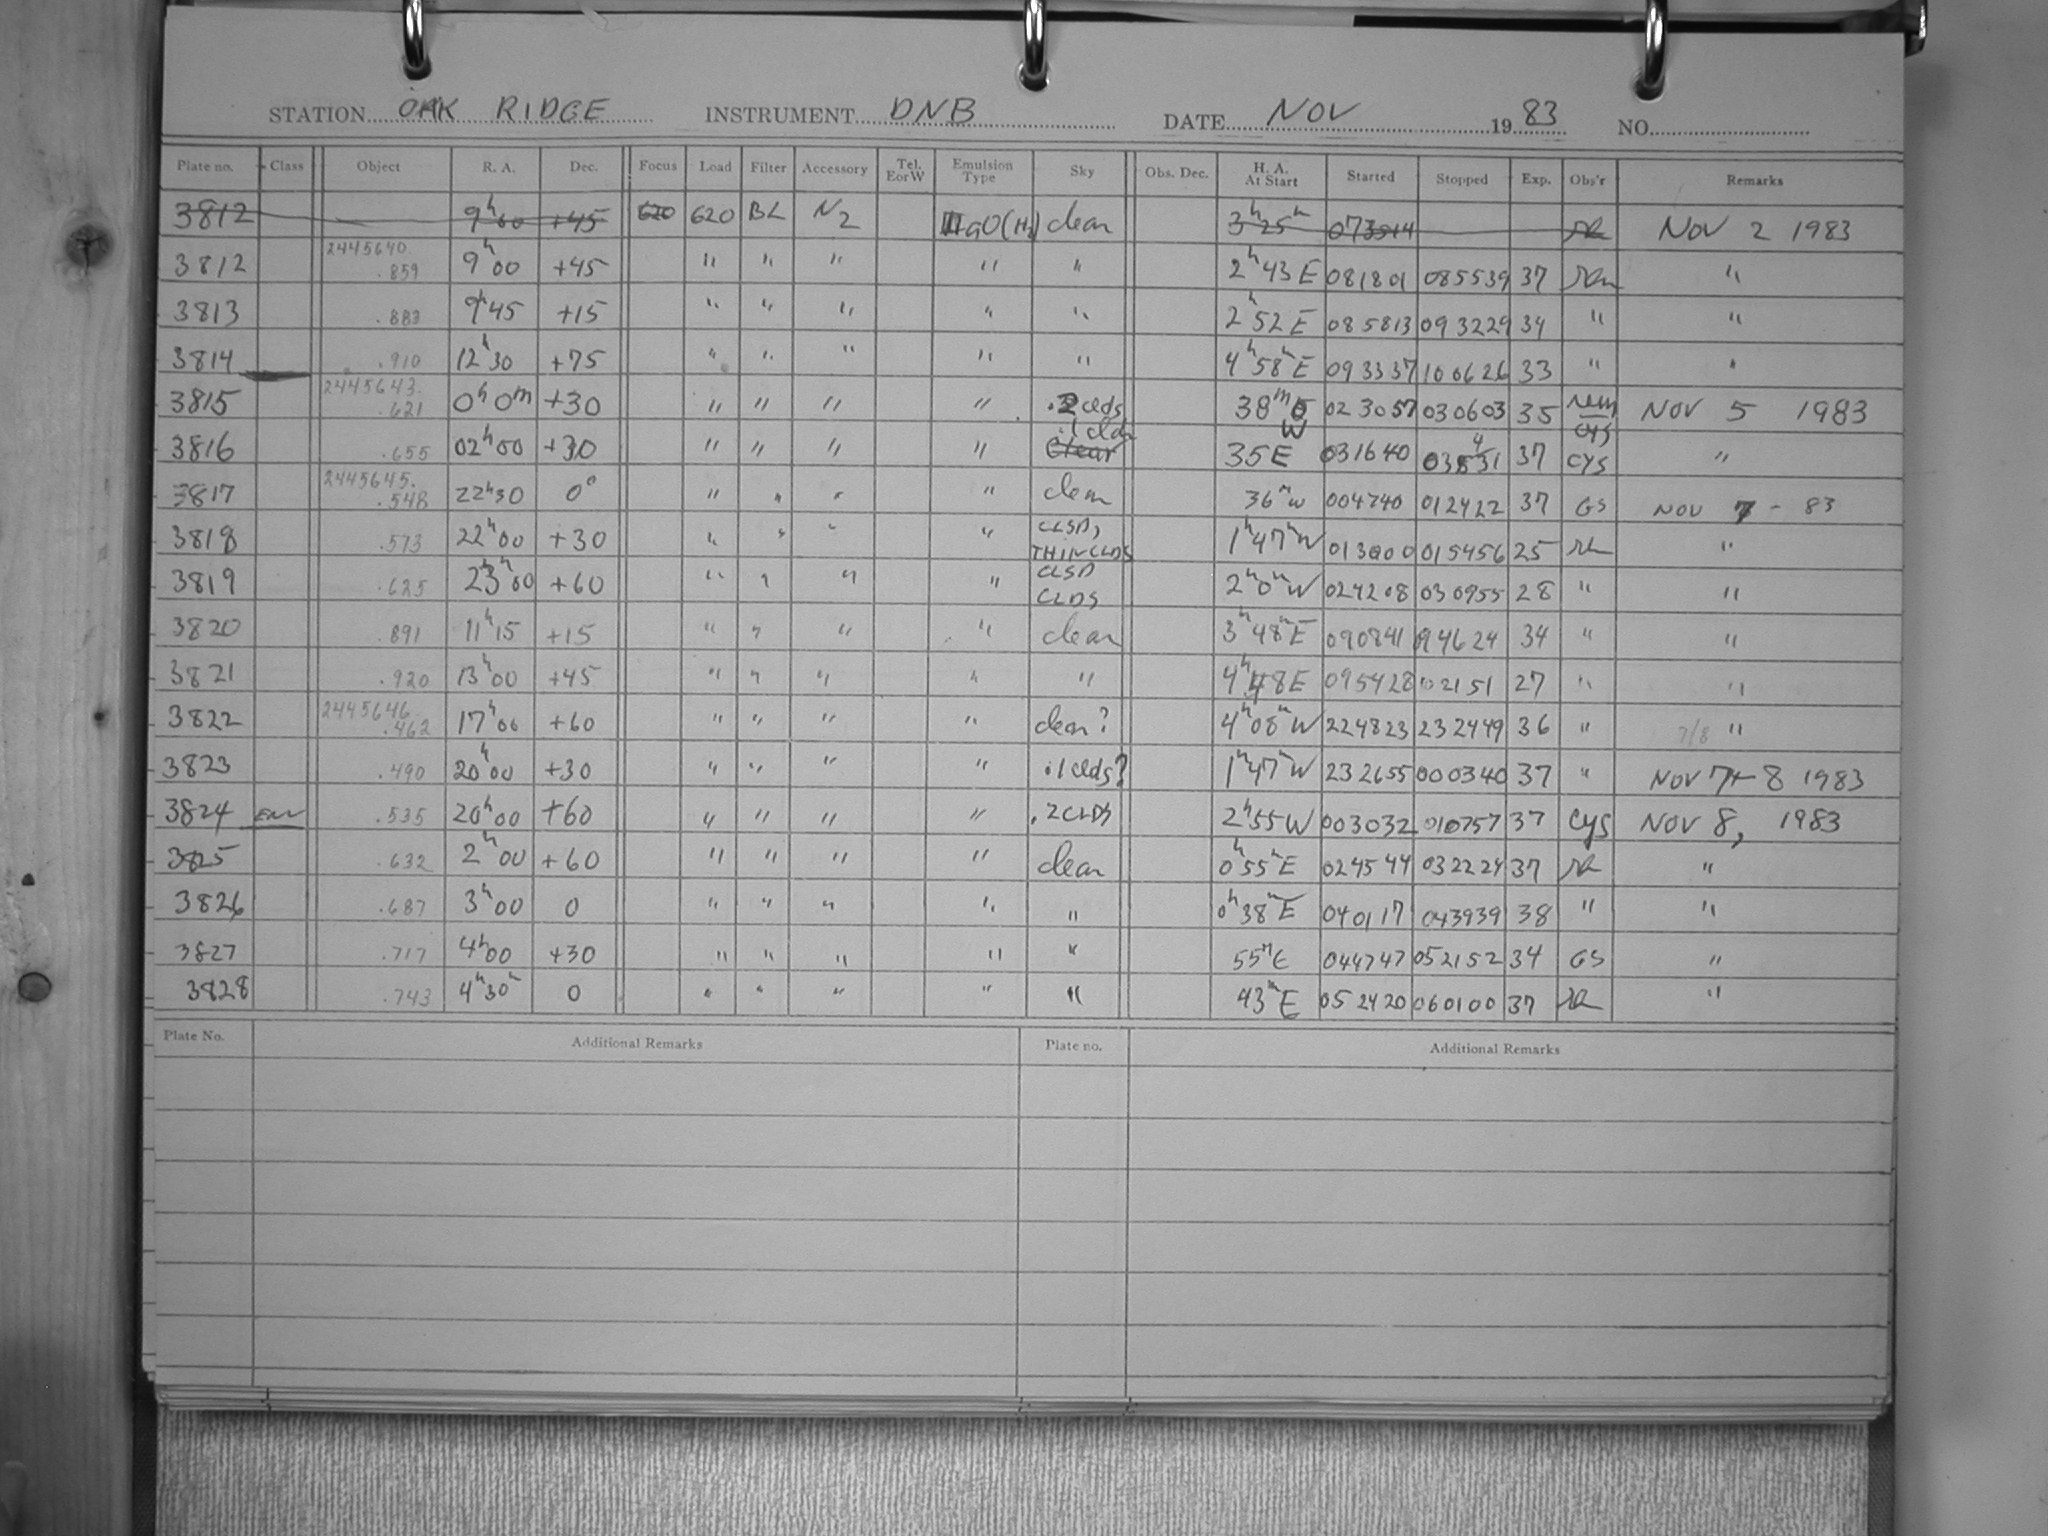 STATION OAK RIDGE INSTRUMENT DNB DATE NOV 1983 NO.
Plate no. Class Object R. A. Dec. Focus Load Filter Accessory Tel. EorW Emulsion Type Sky Obs. Dec. H. A. At Start Started Stopped Exp. Obs'r Remarks
3812 9h00 +45 620 620 BL N2 IIaO(H2) clear 3h25m 073914 NOV 2 1983
3812 2445640 .859 9h00 +45 " " " " " 2h43E 081801 085539 37 "
3813 .883 9h45 +15 " " " " " 2h52E 085813 093229 34 " "
3814 .910 12h30 +75 " " " " " 4h58mE 093337 100626 33 " "
3815 2445643. .621 0h0m +30 " " " " .2clds 38m W 023057 030603 35 cys NOV 5 1983
3816 .655 02h00 +30 " " " " .1 clds clear 35E 031640 035431 37 CYS "
3817 2445645. .548 22h30 0° " " " " clear 36mW 004740 012422 37 GS NOV 7 - 83
3818 .573 22h00 +30 " " " " CLSD, THIN CLDS 1h47mW 013000 015456 25 "
3819 .625 23h00 +60 " " " " CLSD CLDS 2h0mW 024208 030955 28 " "
3820 .891 11h15 +15 " " " " clear 3h48mE 090841 094624 34 " "
3821 .920 13h00 +45 " " " " " 4h48E 095428 102151 27 " "
3822 2445646 .462 17h00 +60 " " " " clear? 4h08mW 224823 232449 36 " 7/8 "
3823 .490 20h00 +30 " " " " .1 clds? 1h47mW 232655 000340 37 " NOV 7+8 1983
3824 .535 20h00 +60 " " " " .2CLDS 2h55W 003032 010757 37 CYS NOV 8, 1983
3825 .632 2h00 +60 " " " " clear 0h55mE 024544 032224 37 "
3826 .687 3h00 0 " " " " " 0h38mE 040117 043939 38 " "
3827 .717 4h00 +30 " " " " " 55mE 044747 052152 34 GS "
3828 .743 4h30m 0 " " " " " 43mE 052420 060100 37 "
Plate No. Additional Remarks Plate no. Additional Remarks